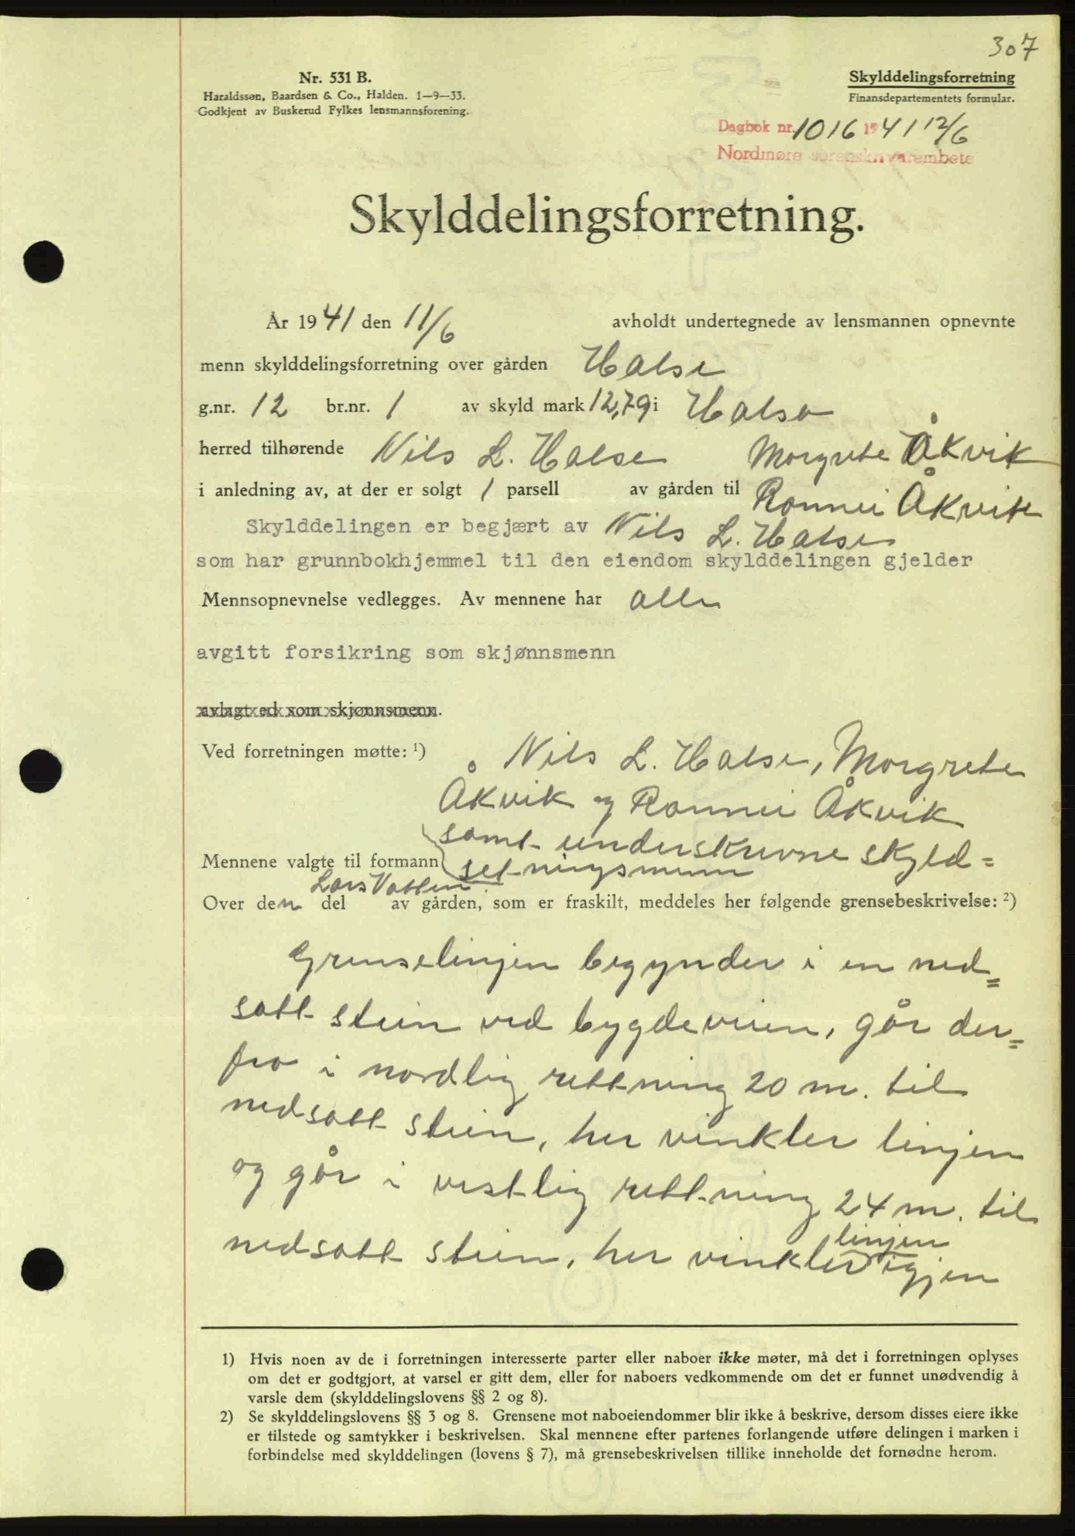 307
Nr. 531 B.
Haraldssøn, Baardsen & Co., Halden. 1—9—33.
Godkjent av Buskerud Fylkes lensmannsforening.
Skylddelingsforretning
Finansdepartementets formular.
Dagbok nr. 1016 1941 12/6
Nordmøre sorenskriverembete
Skylddelingsforretning.
År 1941 den 11/6 avholdt undertegnede av lensmannen opnevnte
menn skylddelingsforretning over gården Halse
g.nr. 12 br.nr. 1 av skyld mark 12,79 i Halsa
herred tilhørende Nils L. Halse Margrete Åkvik
i anledning av, at der er solgt 1 parsell av gården til Ronnei Åkvik
Skylddelingen er begjært av Nils L. Halse
som har grunnbokhjemmel til den eiendom skylddelingen gjelder
Mennsopnevnelse vedlegges. Av mennene har alle
avgitt forsikring som skjønnsmenn
avlagt ed som skjønnsmenn.
Ved forretningen møtte: 1) Nils L. Halse, Margrete
Åkvik og Ronnei Åkvik
samt underskrivne skyld=
Mennene valgte til formann setningsmenn
Lars Vatten
Over den del av gården, som er fraskilt, meddeles her følgende grensebeskrivelse: 2)
Grenselinjen begynder i en ned=
satt stein ved bygdeveien, går der=
fra i nordlig rettning 20 m. til
nedsatt stein, her vinkler linjen
og går i vestlig rettning 24 m. til
nedsatt stein, her vinkler linjen igjen
1) Hvis noen av de i forretningen interesserte parter eller naboer ikke møter, må det i forretningen oplyses
om det er godtgjort, at varsel er gitt dem, eller for naboers vedkommende om det er funnet unødvendig å
varsle dem (skylddelingslovens §§ 2 og 8).
2) Se skylddelingslovens §§ 3 og 8. Grensene mot naboeiendommer blir ikke å beskrive, dersom disses eiere ikke
er tilstede og samtykker i beskrivelsen. Skal mennene efter partenes forlangende utføre delingen i marken i
forbindelse med skylddelingen (lovens § 7), må grensebeskrivelsen tillike inneholde det fornødne herom.